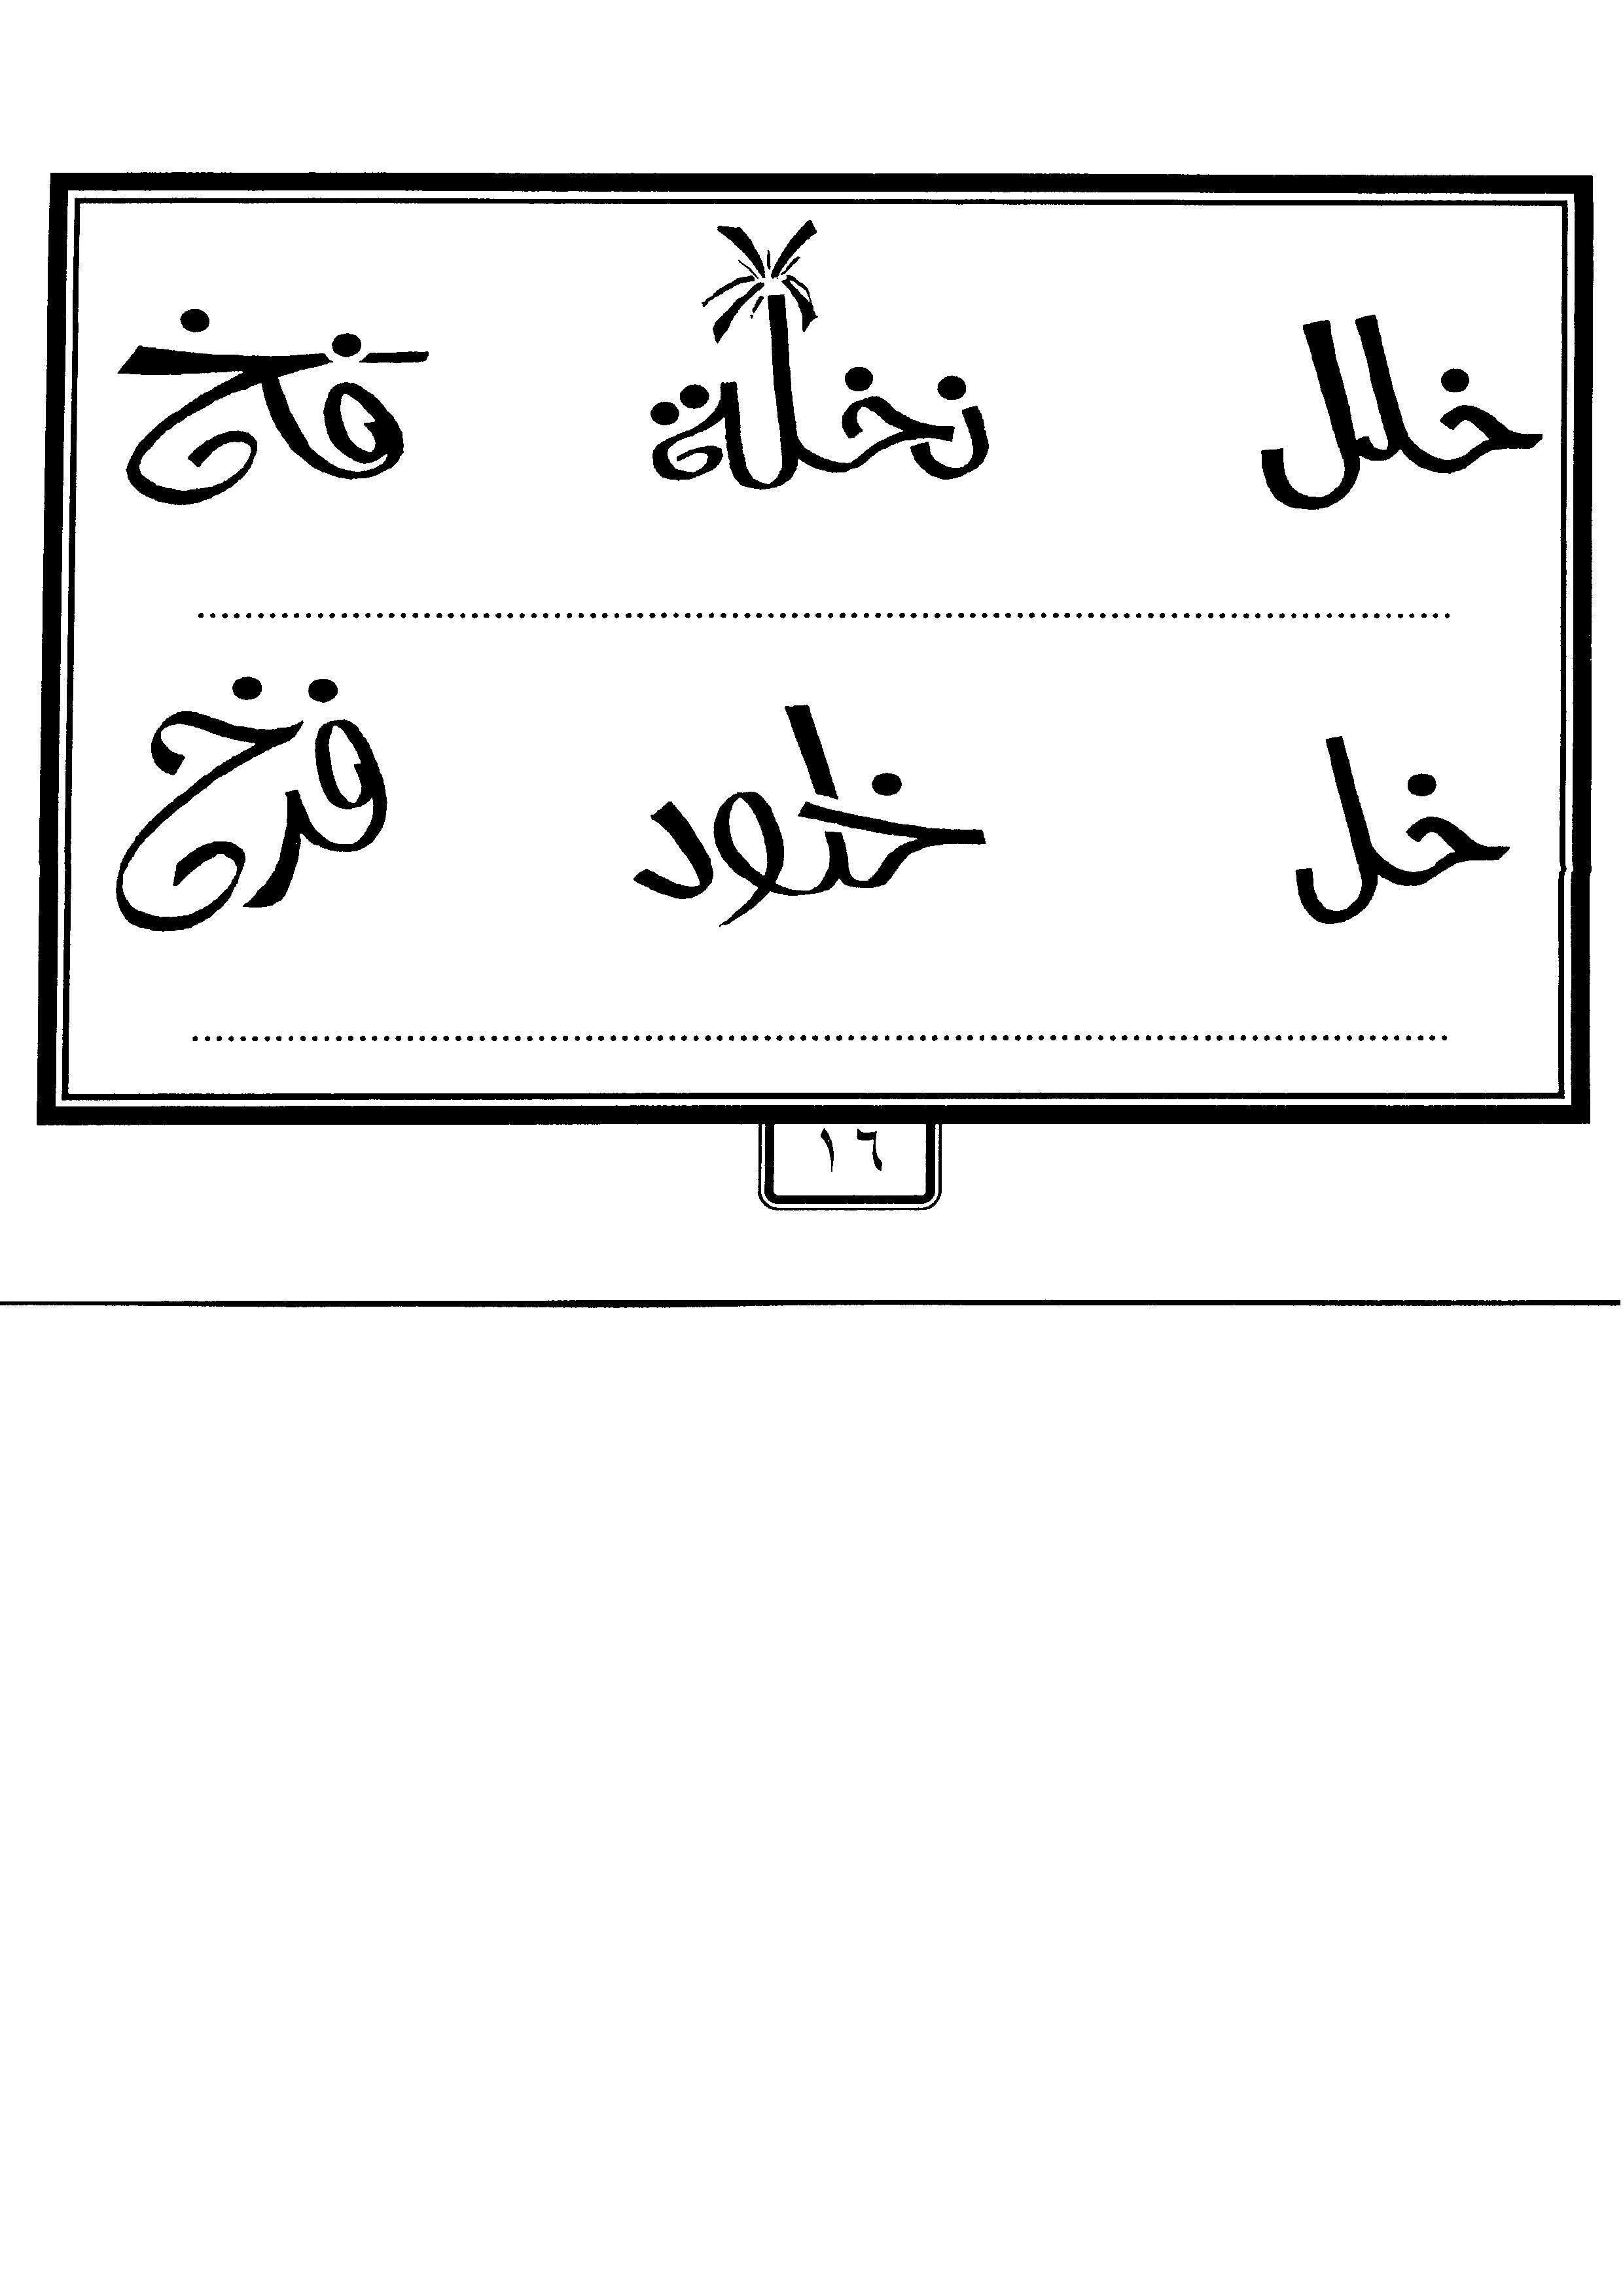 خلل نخلة فخ
خل خلود فرخ
١٦